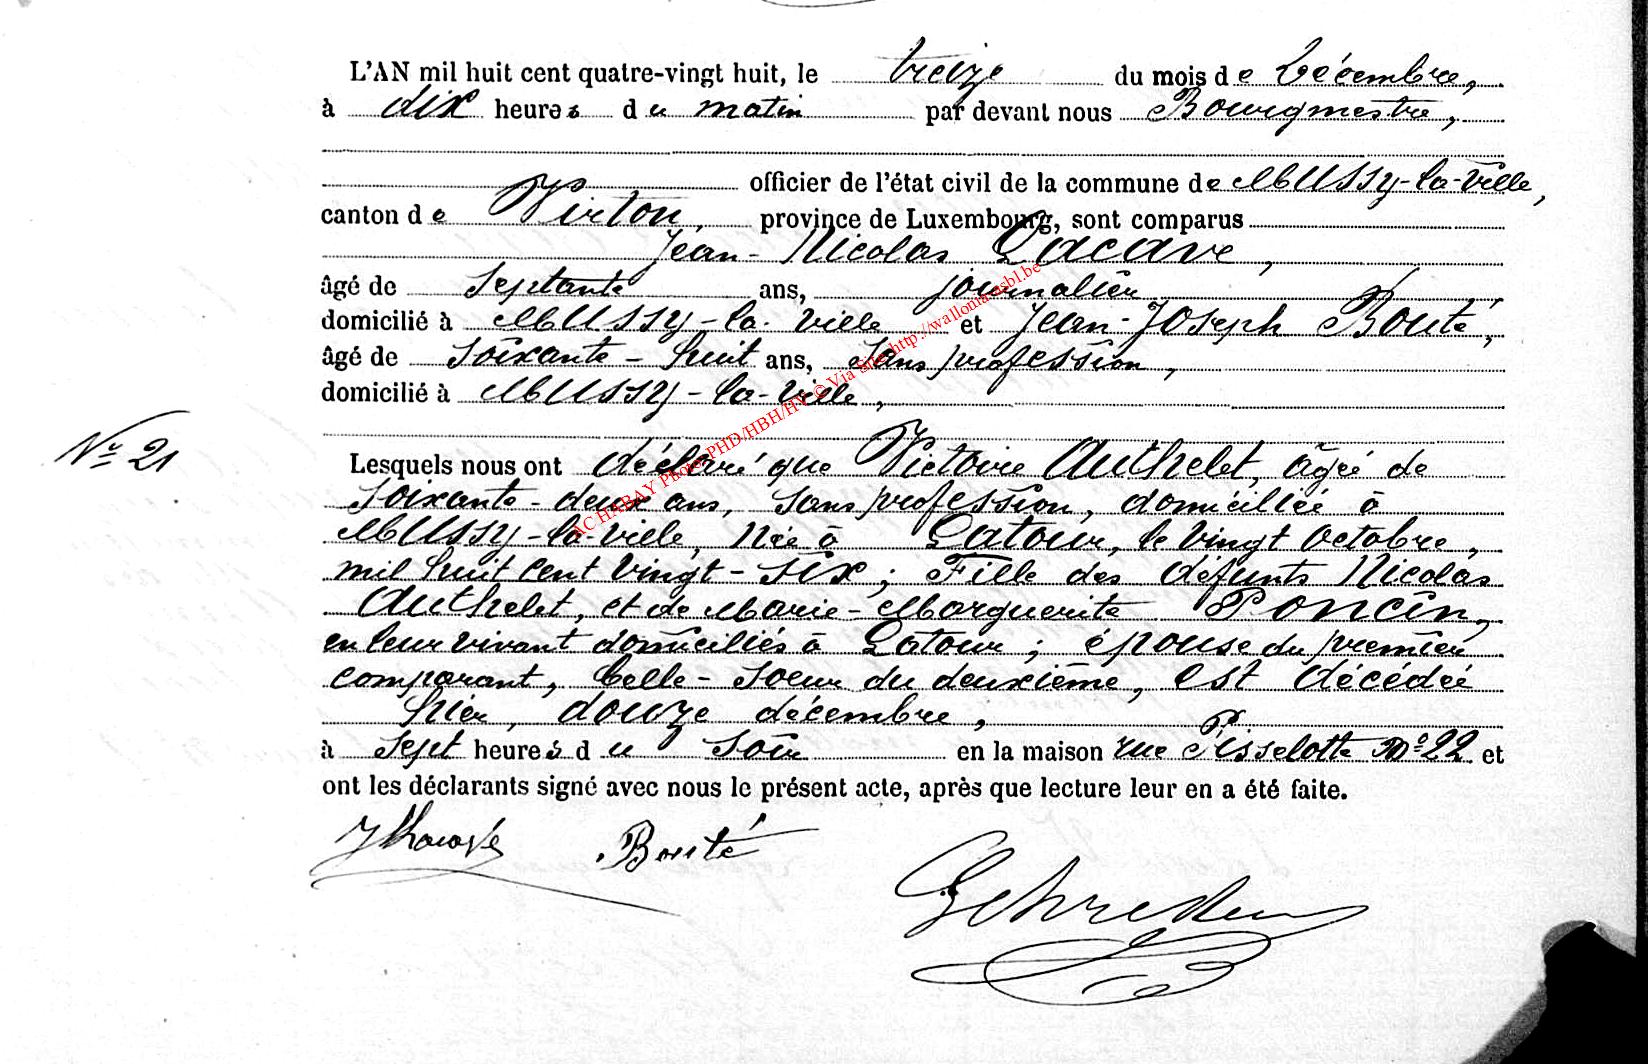 L'AN mil huit cent quatre-vingt huit, le treize du mois de Décembre,
à dix heures du matin par devant nous Bourgmestre,
officier de l'état civil de la commune de Mussy-la-Ville,
canton de Virton, province de Luxembourg, sont comparus
Jean-Nicolas Lacave,
âgé de septante ans, journalier
domicilié à Mussy-la-Ville et Jean-Joseph Bouté,
âgé de soixante-huit ans, sans profession,
domicilié à Mussy-la-Ville,
N° 21
Lesquels nous ont déclaré que Victoire Authelet, âgée de
soixante-deux ans, sans profession, domiciliée à
Mussy-la-Ville, née à Latour, le vingt octobre,
mil huit cent vingt-six; Fille des défunts Nicolas
Authelet, et de Marie-Marguerite Poncin,
en leur vivant domiciliés à Latour; épouse du premier
comparant, belle-soeur du deuxième, est décédée
hier, douze décembre,
à sept heures du soir en la maison rue Pisselotte N° 22 et
ont les déclarants signé avec nous le présent acte, après que lecture leur en a été faite.
Bouté
ACHABAY Photos PHD/HBH/HV © Via Site http://wallonia.asbl.be